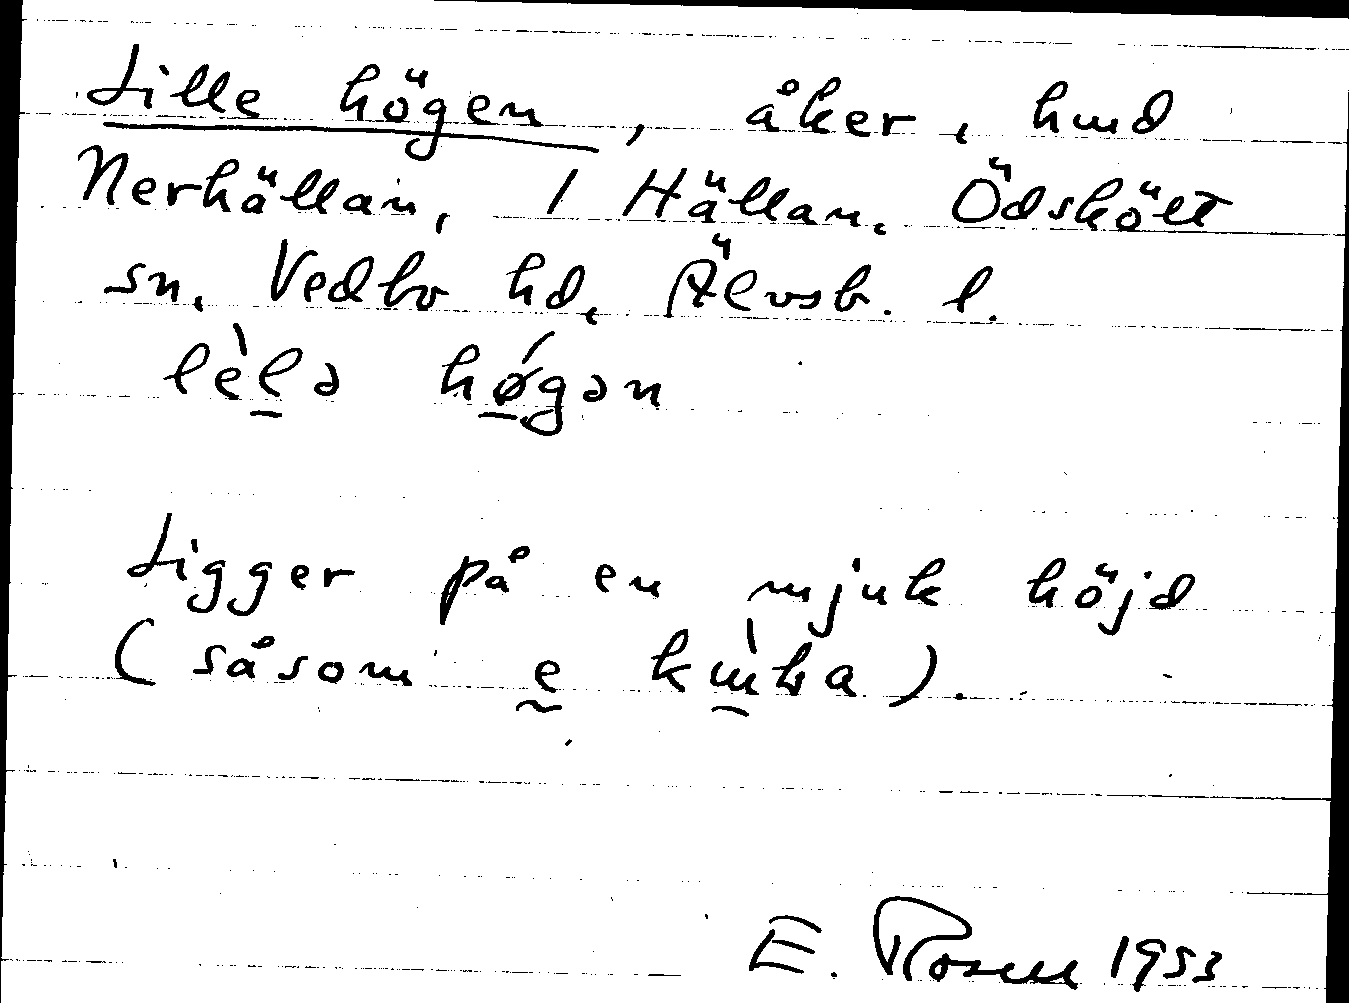 Lille högen, åker, hmd
Nerhällan, 1 Hällan. Ödskölt
sn. Vedbo hd, Älvsb. l.
lèlə hǿgən
Ligger på en mjuk höjd
(såsom e kùba).
E. Rosell 1953